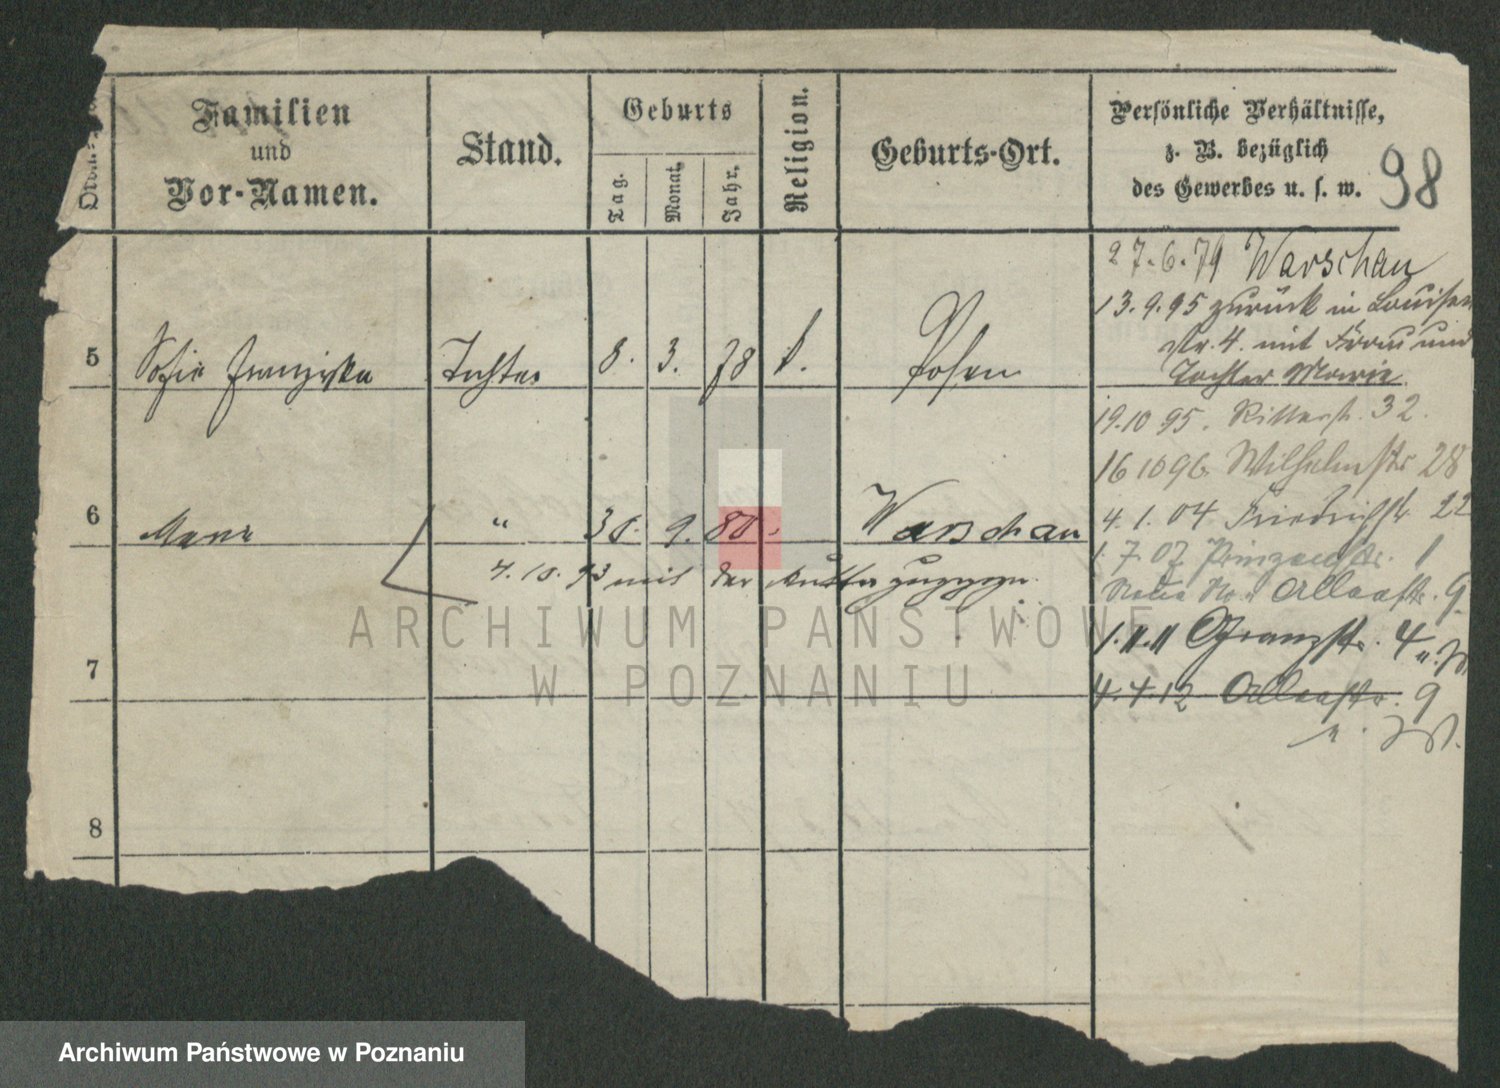 Familien
und
Vor-Namen.
Stand.
Geburts
Tag.
Monat.
Jahr.
Religion.
Geburts-Ort.
Persönliche Verhältnisse,
z. B. bezüglich
des Gewerbes u. s. w.
98
27.6.79 Warschau
13.9.95 zurück in Louisen
str. 4. mit Frau und
Tochter Marie
5 Sofie Franziska Tochter 8. 3. 78 k. Posen
19.10 95. Ritterstr. 32.
16 10 96. Wilhelmstr 28
6 Marie " 30. 9. 80. Warschau
4.1.04. Friedrichstr. 22
4.10.93 mit der Mutter zugezogen.
1.7.07 Prinzenstr. 1
Neue No. Allee str. 9
1.11.11 Granzstr. 4
7
4.4.12 9
8
ARCHIWUM PAŃSTWOWE
W POZNANIU
Archiwum Państwowe w Poznaniu